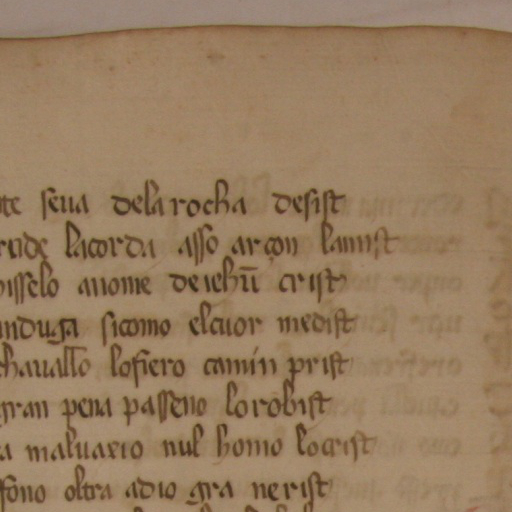 seua dela rocha desist
lacorda asso arçon lamist
isselo anome de iehū crist
induga sicomo elcuor medist
chauall̄o lofiero camin prist
gran pena passeno lorobist
a maluaxio nul homo locrist
fono oltra adio gra nerist